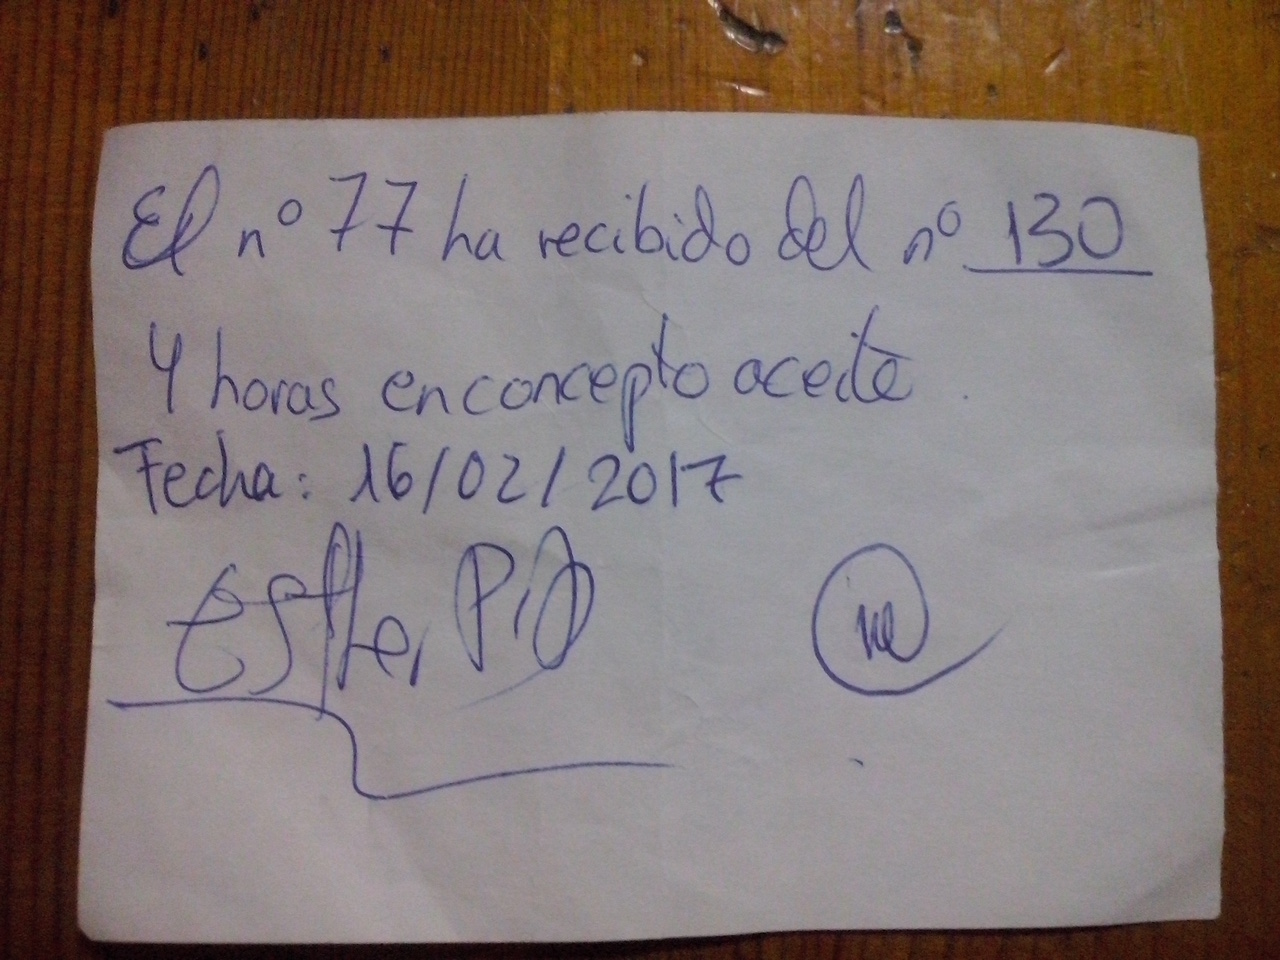 El nº 77 ha recibido del nº 130
4 horas en concepto aceite
Fecha: 16/02/2017